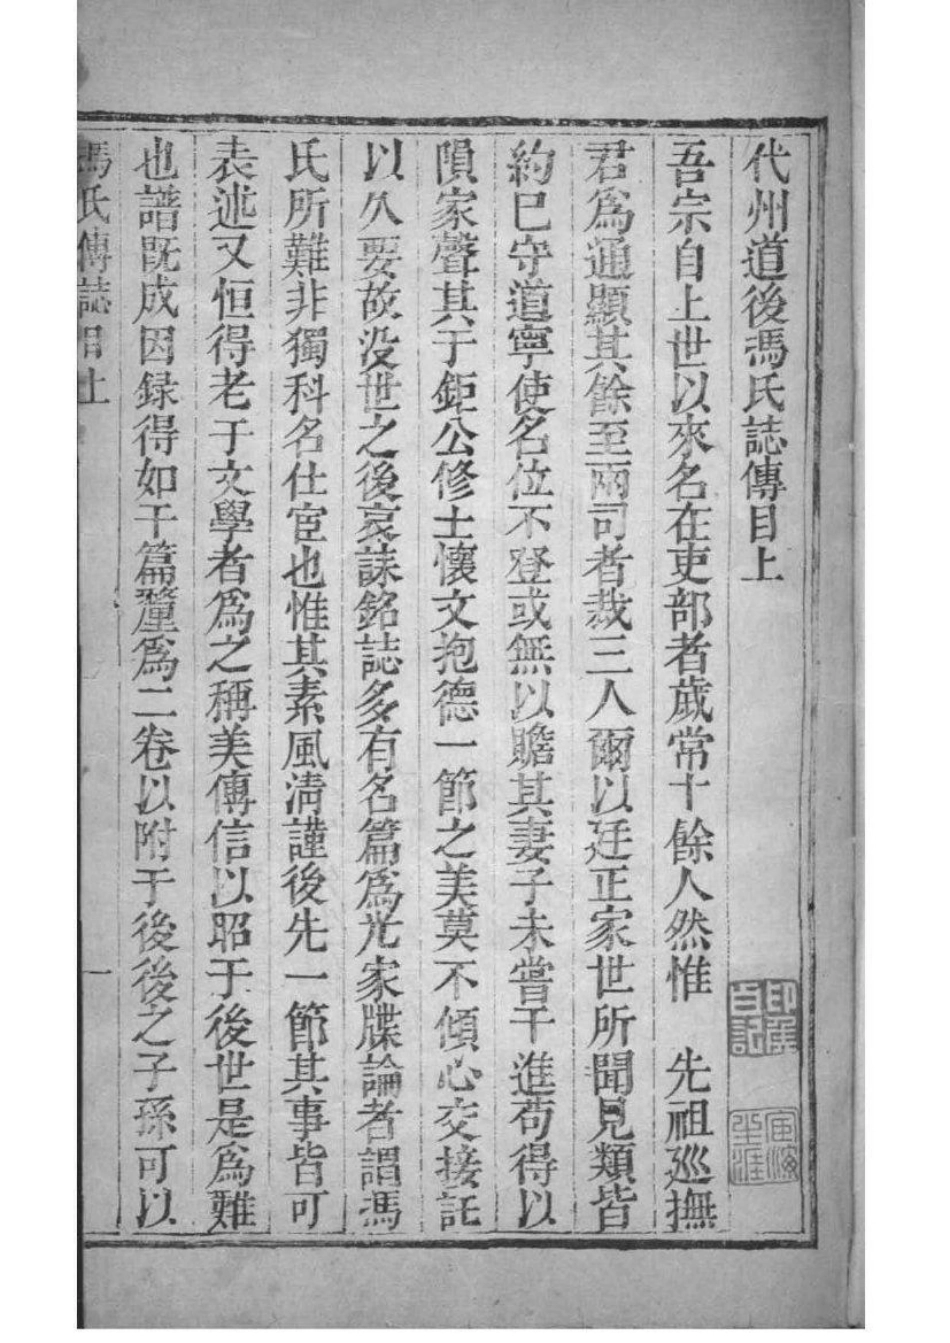 代州道後馮氏誌傳目上
吾宗自上世以來名在吏部者歲常十餘人然惟　先祖廵撫
君爲通顯其餘至兩司者裁三人爾以廷正家世所聞見類皆
約巳守道寧使名位不登或無以贍其妻子未嘗干進苟得以
隕家聲其于鉅公修士懷文抱德一節之美莫不傾心交接託
以久要故没世之後哀誄銘誌多有名篇爲光家牒論者謂馮
氏所難非獨科名仕宦也惟其素風淸謹後先一節其事皆可
表述又恒得老于文學者爲之稱美傳信以昭于後世是爲難
也譜既成因録得如干篇釐爲二卷以附于後後之子孫可以
馮氏傳誌目上
一